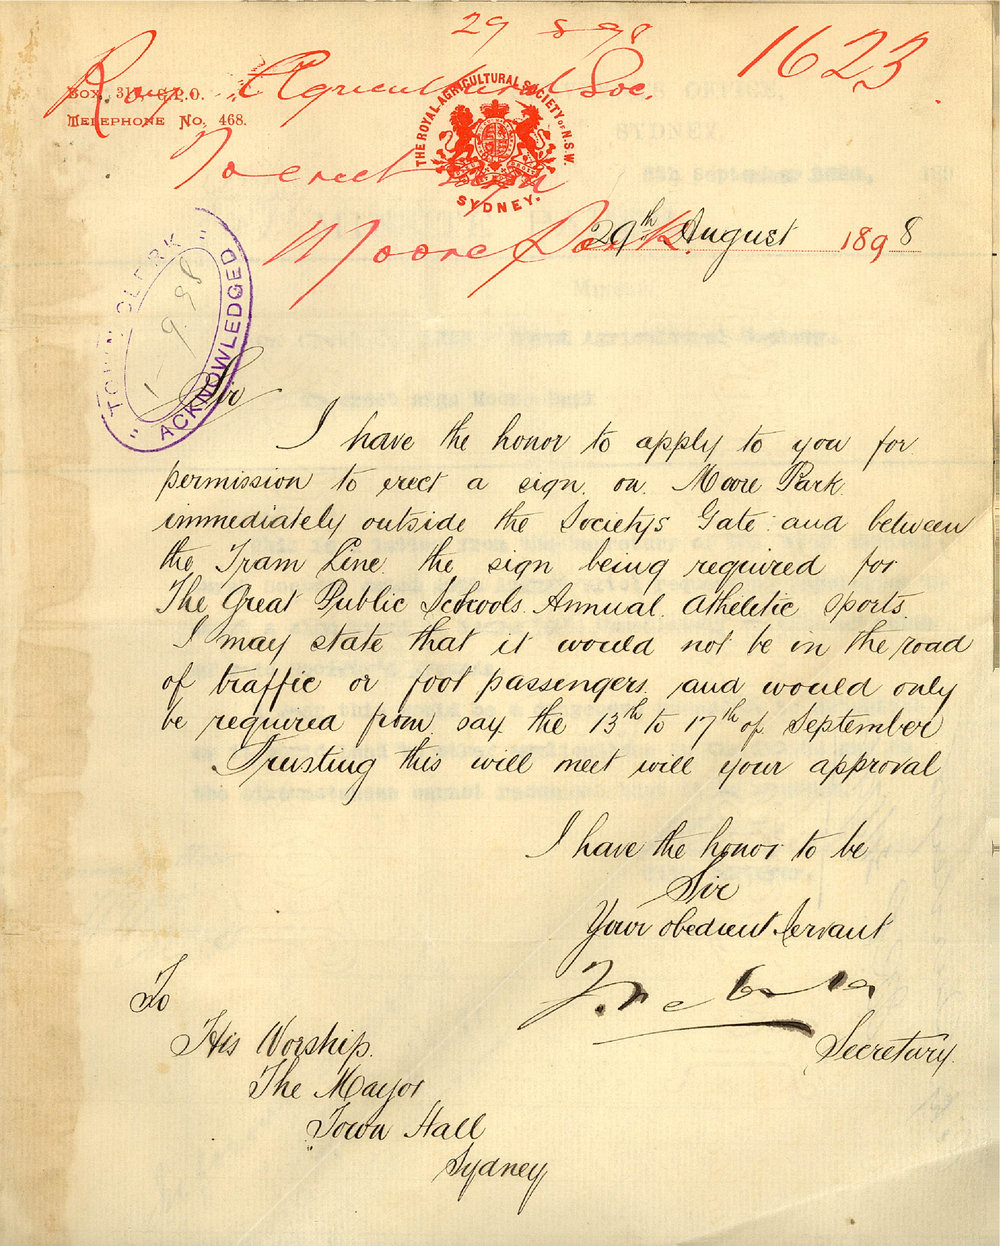 29 8 98
1623
Roy Agricultural Soc.
Box 317, G.P.O.
Telephone No. 468.
THE ROYAL AGRICULTURAL SOCIETY OF N.S.W.
SYDNEY.
To erect sign
Moore Park.
29th August 1898
TOWN CLERK
1-9.98
ACKNOWLEDGED
Sir
I have the honor to apply to you for
permission to erect a sign on Moore Park
immediately outside the Society's Gate and between
the Tram Line the sign being required for
The Great Public Schools Annual Atheletic Sports
I may state that it would not be in the road
of traffic or foot passengers and would only
be required from say the 13th to 17th of September
Trusting this will meet will your approval
I have the honor to be
Sir
Your obedient Servant
Secretary.
To
His Worship.
The Mayor
Town Hall
Sydney